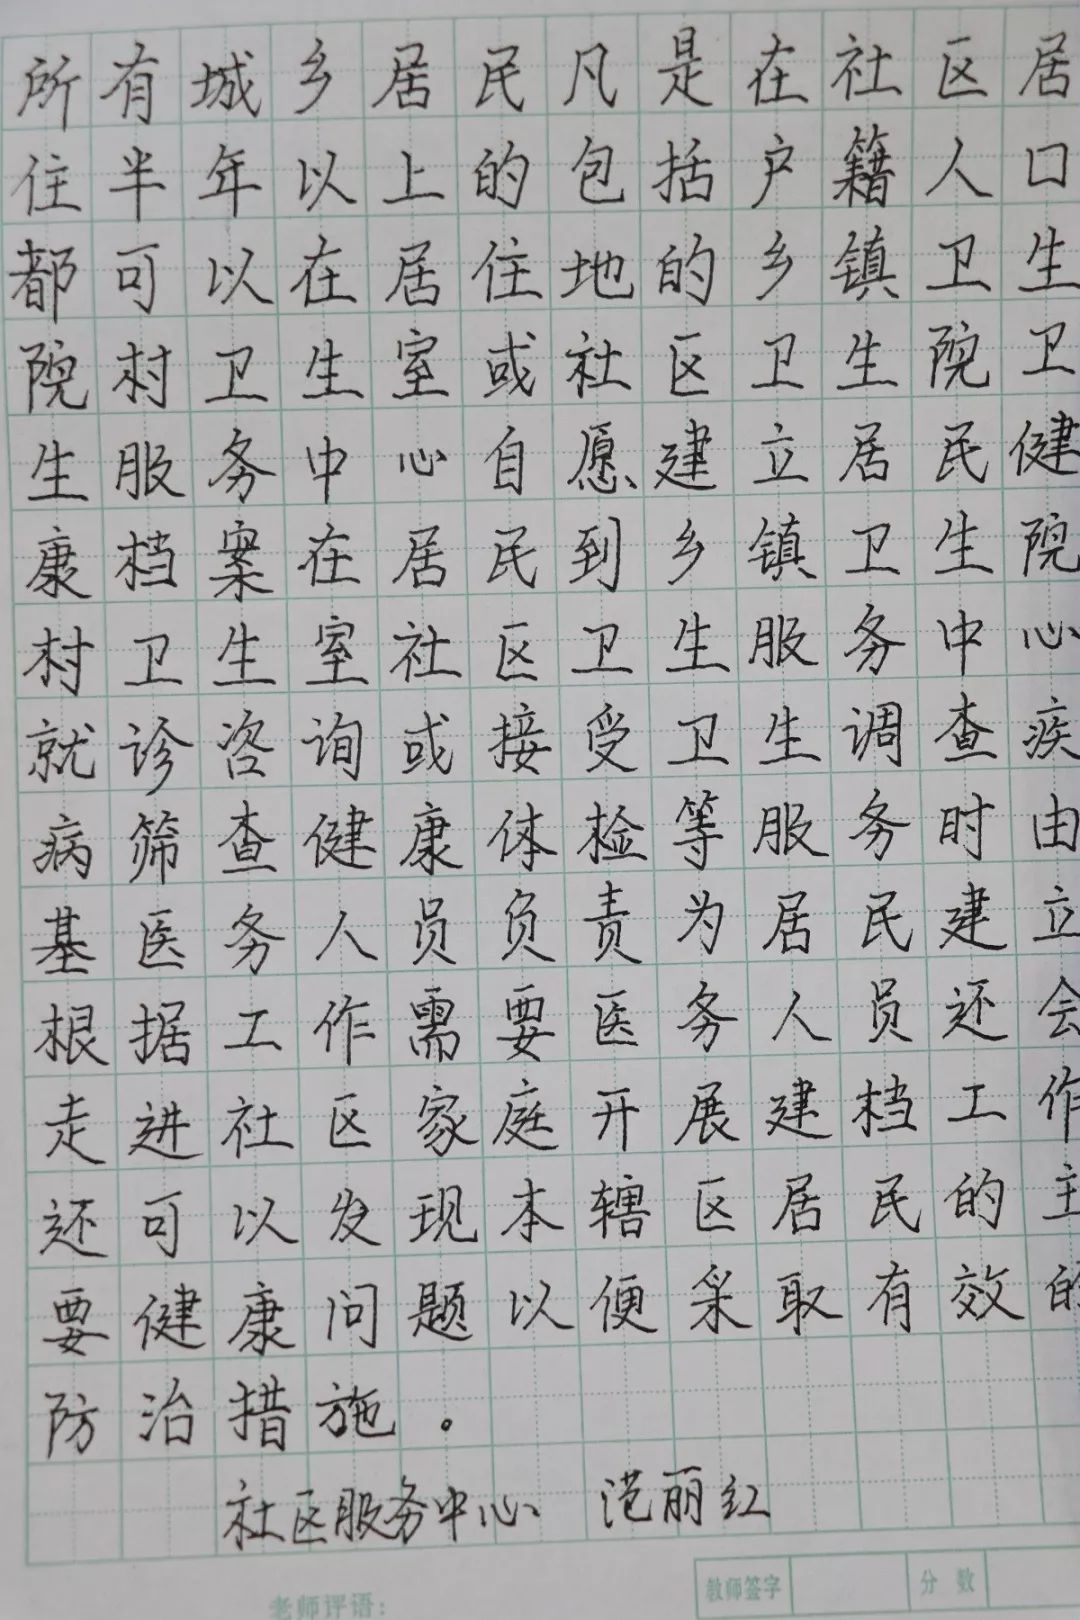 所有城乡居民凡是在社区居
住半年以上的包括户籍人口
都可以在居住地的乡镇卫生
院村卫生室或社区卫生院卫
生服务中心自愿建立居民健
康档案在居民到乡镇卫生院
村卫生室社区卫生服务中心
就诊咨询或接受卫生调查疾
病筛查健康体检等服务时由
基医务人员负责为居民建立
根据工作需要医务人员还会
走进社区家庭开展建档工作
还可以发现本辖区居民的主
要健康问题以便采取有效的
防治措施。
社区服务中心 范丽红
教师签字 分数
老师评语：